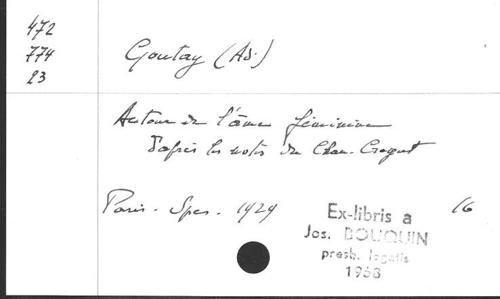 472
774
23
Goutay (Ad.)
Autour de l'âme féminine
d'après les notes du Chan. Croquet
Paris - Spes - 1929
16
Ex-libris a
Jos. BOUQUIN
presb. legatis
1968